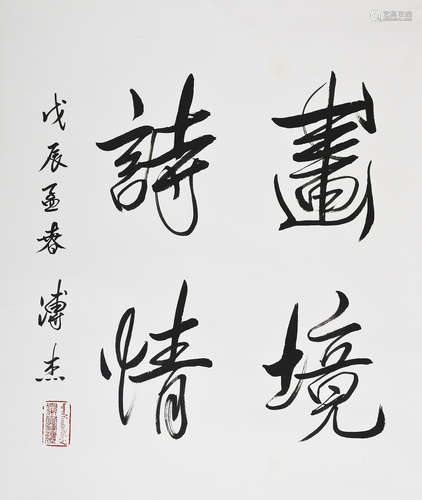 畫境
詩情
戊辰孟春
溥杰